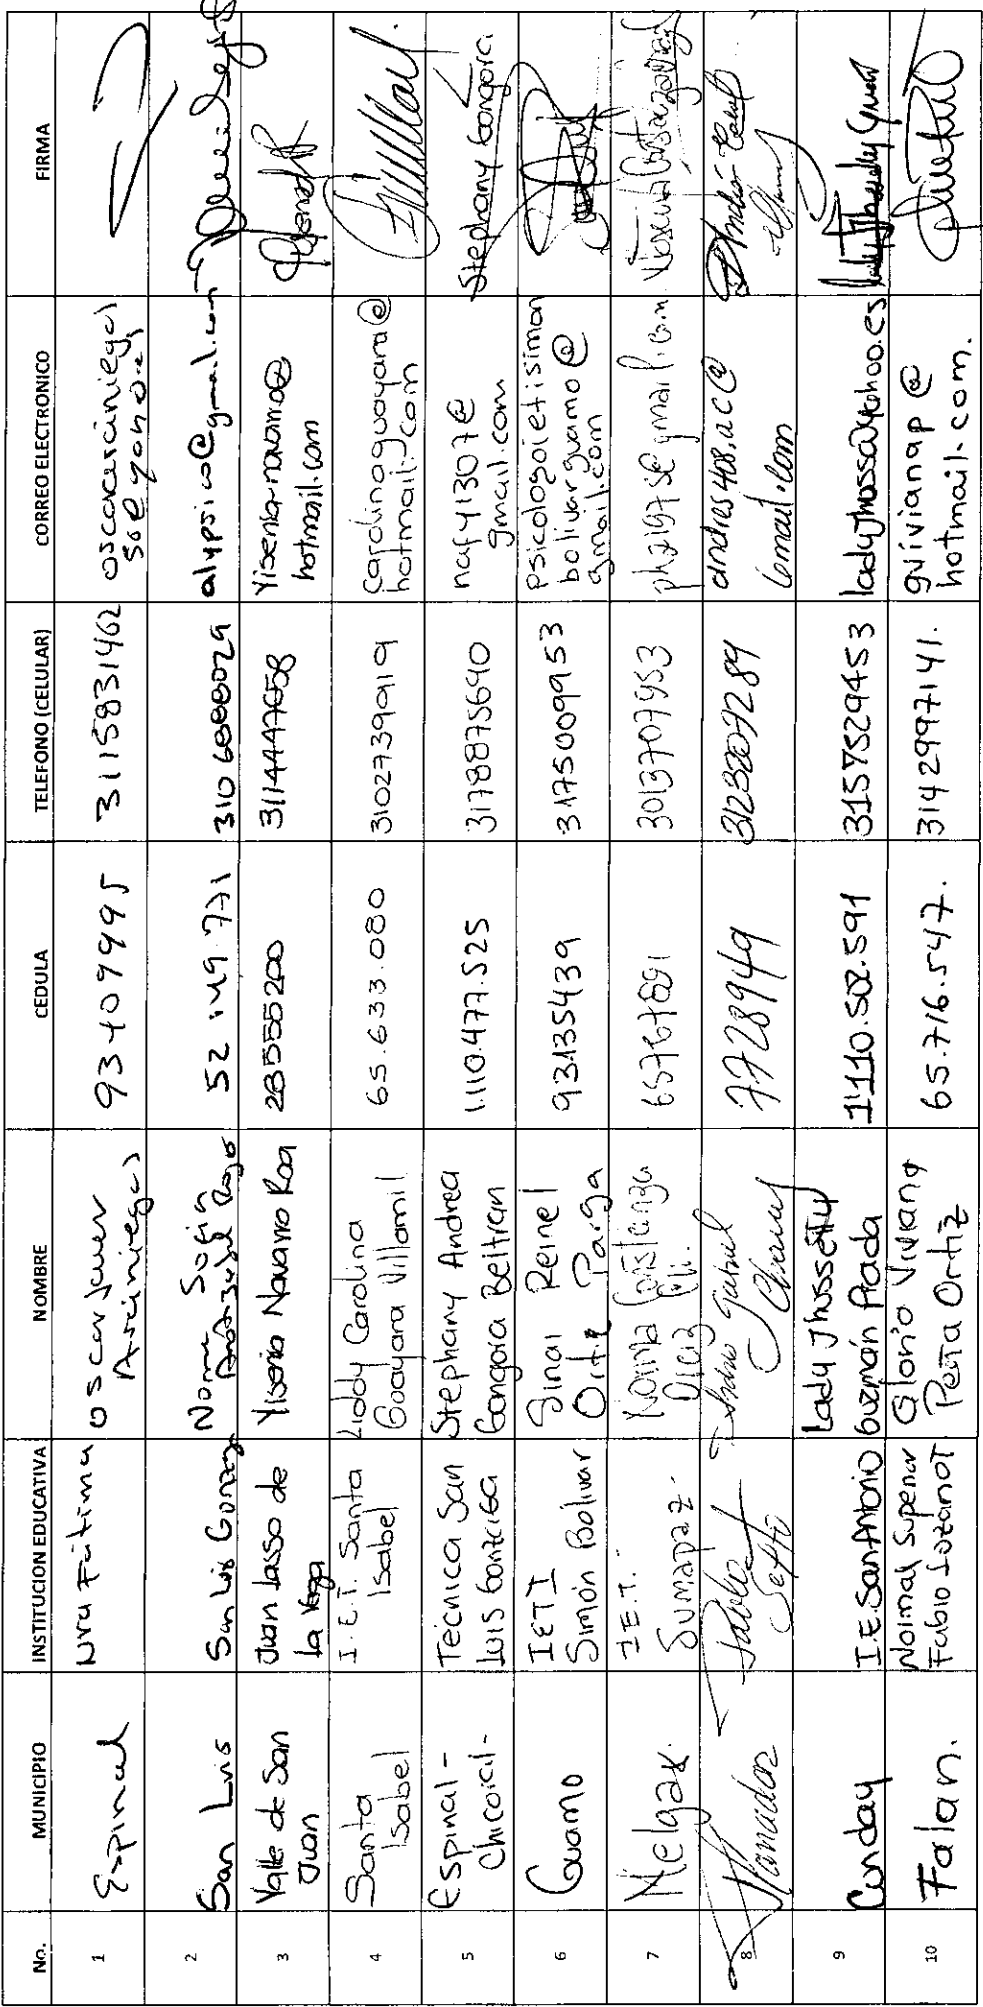 No. MUNICIPIO INSTITUCION EDUCATIVA NOMBRE CEDULA TELEFONO (CELULAR) CORREO ELECTRONICO FIRMA
1 Espinal Nra Fatima Oscar Javier Arciniegas 93409995 3115831462 oscararciniegas
2 San Luis San Luis Gonzaga Norma Sofia 771 alypsico@gmail.com
3 Valle de San Juan Juan Lasso de la Vega Yisenia Navarro Roa 28555200 3114447658 Yisenia-navarro@
hotmail.com
4 Santa Isabel I.E.T. Santa Isabel Liddy Carolina Guayara Villamil 65.633.080 3102739919 carolinaguayara@
hotmail.com
5 Espinal - Chicoral - Tecnica San Luis Gonzaga Stephany Andrea Gongora Beltran 1.110.477.525 3178875640 nafy1307@
gmail.com Stephany Gongora
6 Guamo IETI Simón Bolivar Sinai Reinel Ortiz Parga 93135439 3175009953 psicologoietisimon
bolivarguamo@
gmail.com
7 Melgar. I.E.T. Sumapaz. Norma Constanza 65767891 3013707953
8 7728949 3123207289 andres408.ac@
Gmail.com
9 Cunday I.E. San Antonio Lady Jhussety Guzmán Prada 1'110.502.591 3157529453
10 Falan. Normal Superior Fabio Lozano T Gloria Viviana Peña Ortiz 65.716.547. 3142997141. gviviana p@
hotmail.com.